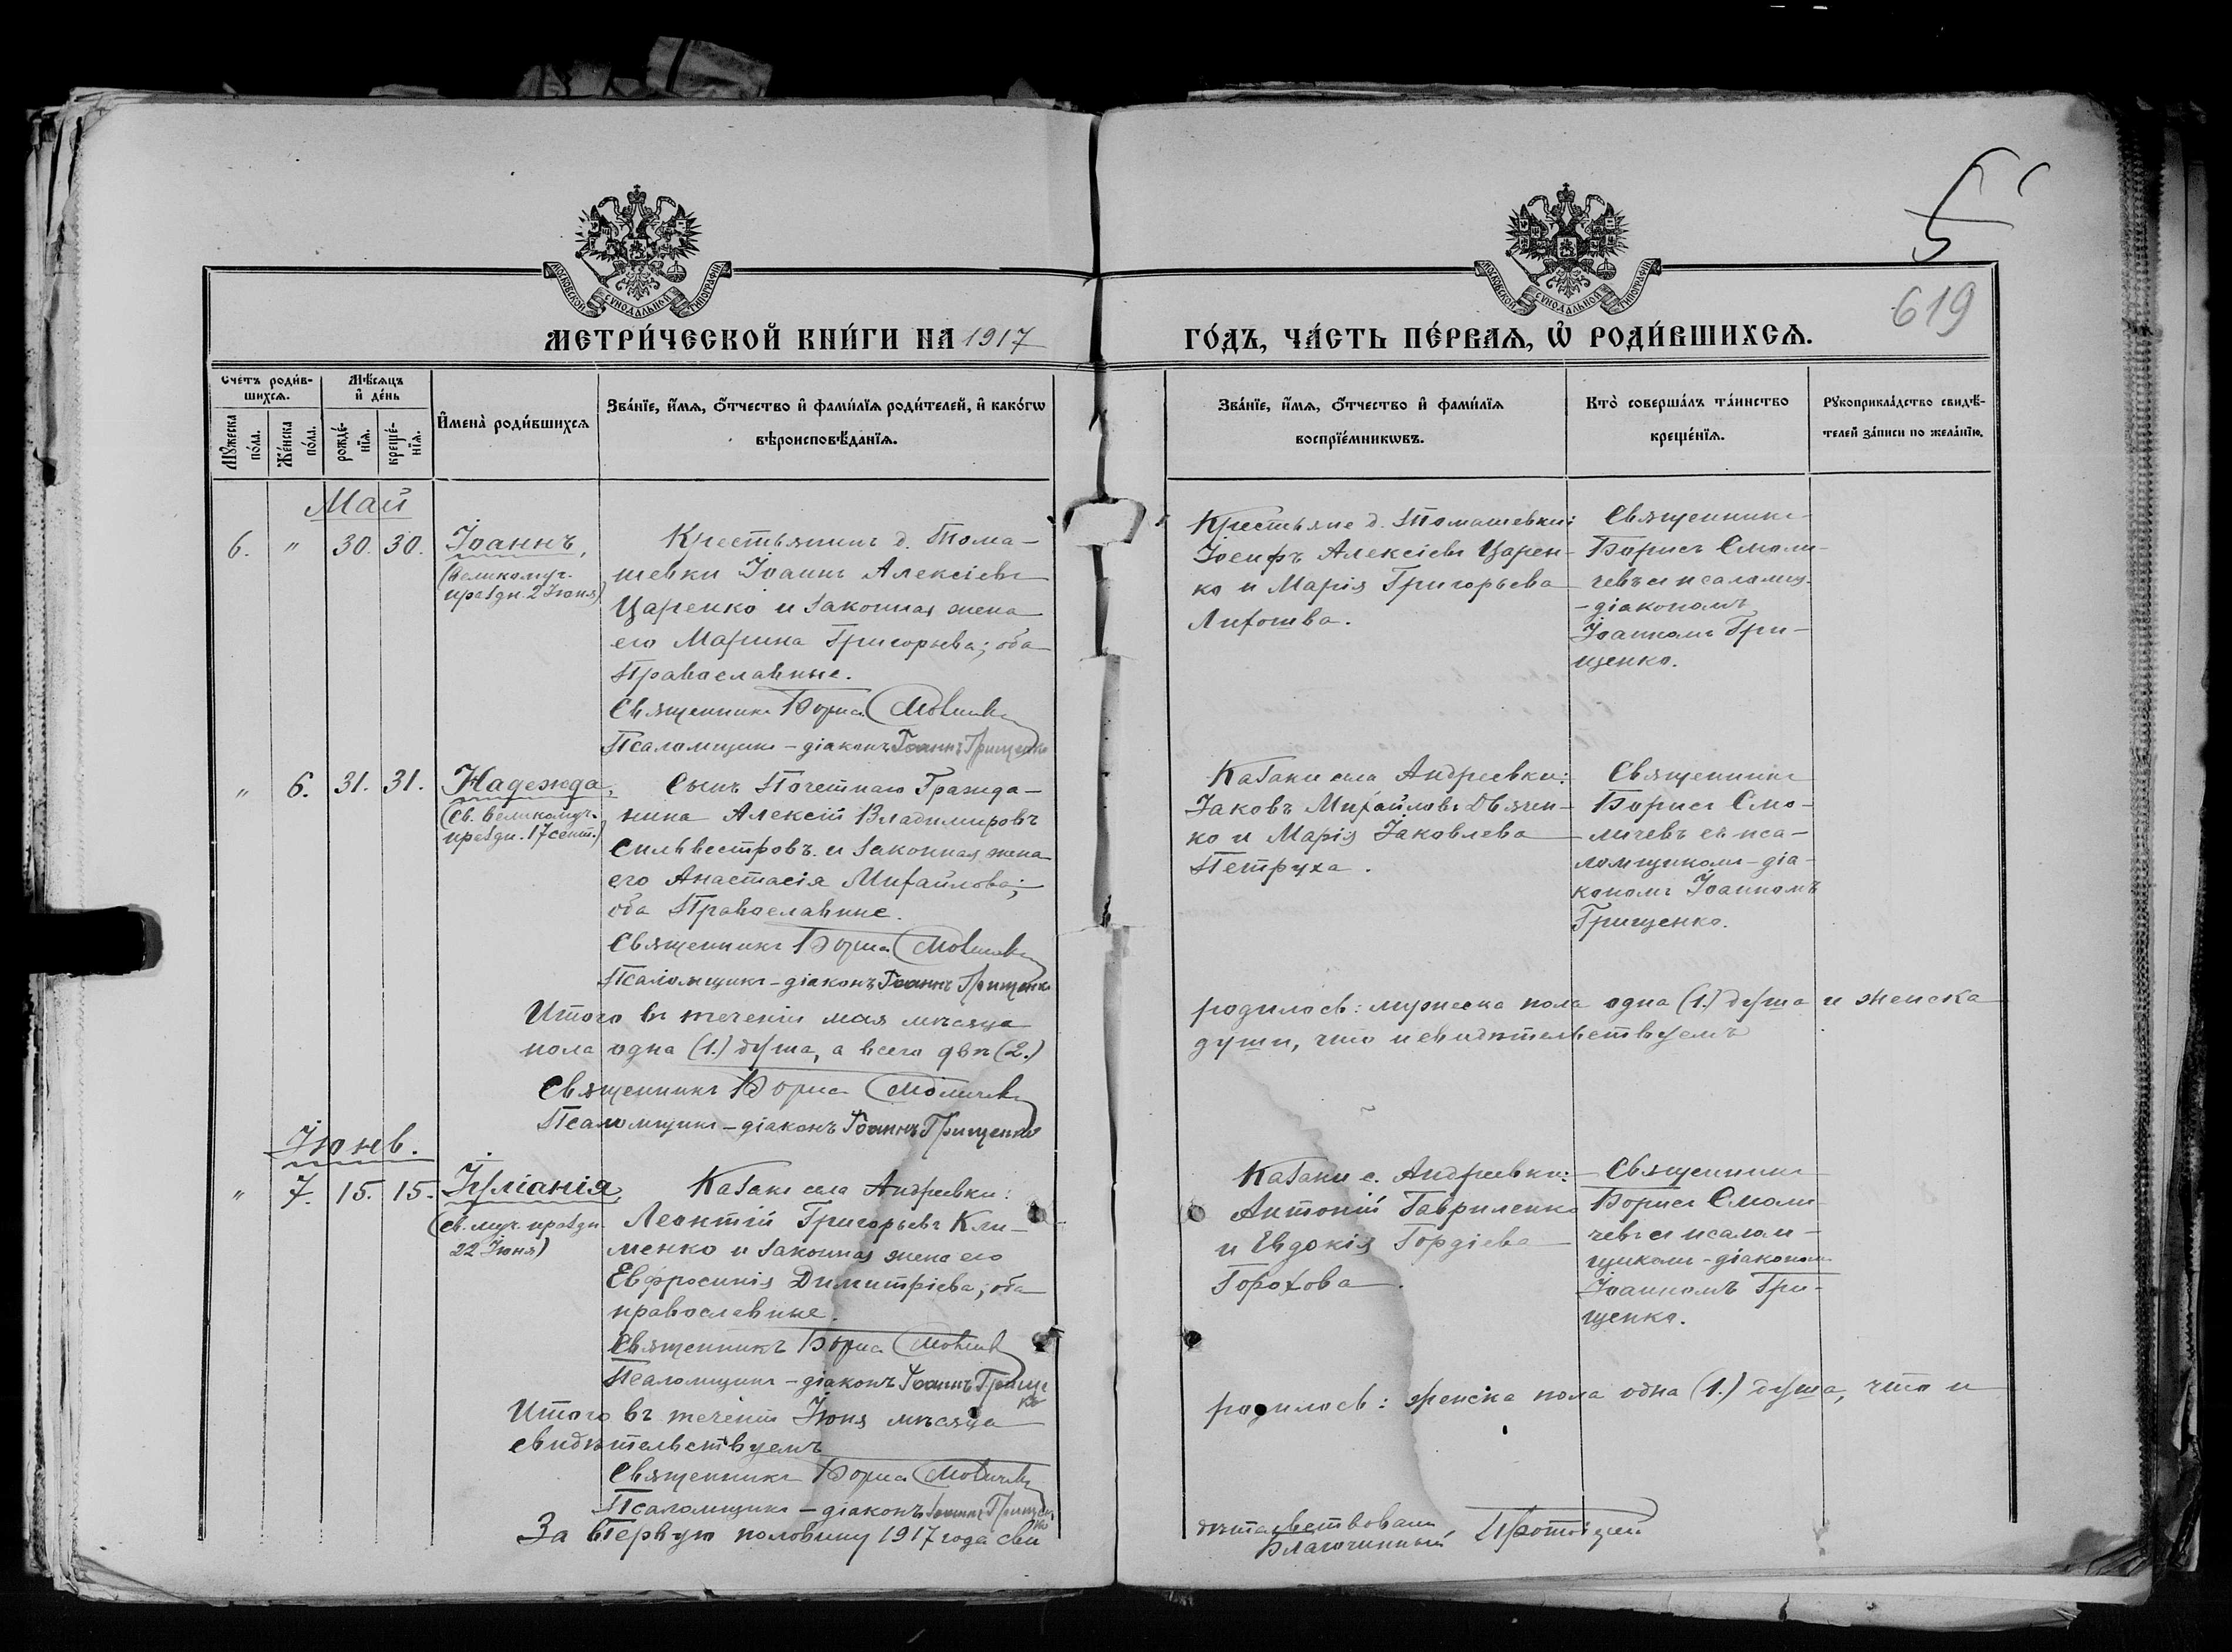 5
619
МОСКОВСКОЙ СУНОДАЛЬНОЙ ТИПОГРАФІИ
МОСКОВСКОЙ СУНОДАЛЬНОЙ ТИПОГРАФІИ
МЕТРИ́ЧЕСКОЙ КНИ́ГИ НА 1917
ГО́ДЪ, ЧА́СТЬ ПЕ́РВАЯ, Ѡ РОДИ́ВШИХСЯ.
Счётъ роди́в-
шихся.
Мѣ́сяцъ
и де́нь
Мꙋжеска
по́ла.
Же́нска
по́ла.
рожде́-
нїя.
креще́-
нїя.
И҆мена̀ роди́вшихся
Зва́нїе, и҆́мя, ѻ҆́тчество и҆ фами́лїя роди́телей, и҆ како́гѡ
вѣроисповѣ́данїя.
Зва́нїе, и҆́мя, ѻ҆́тчество и҆ фами́лїя
воспрїе́мникѡвъ.
Кто̀ соверша́лъ та́инство
креще́нїя.
Рꙋкоприкла́дство свидѣ́-
телей за́писи по жела́нїю.
Май
6. " 30. 30. Іоаннъ,
(великомуч.
праздн. 2 Іюня)
Крестьянинъ д. Тома-
шевки Іоаннъ Алексіевъ
Царенко и законная жена
его Марина Григорьева; оба
Православные.
Священникъ Борисъ Смоличевъ
Псаломщикъ-діаконъ Іоаннъ Грищенко
Крестьяне д. Томашевки:
Іосифъ Алексіевъ Царен-
ко и Марія Григорьева
Священникъ
Борисъ Смоли-
чевъ съ псаломщ.
-діакономъ
Іоанномъ Гри-
щенко.
" 6. 31. 31. Надежда,
(св. великомуч.
праздн. 17 сент.)
Сынъ Почетнаго Гражда-
нина Алексій Владимировъ
Сильвестровъ и законная жена
его Анастасія Михайлова;
оба Православные.
Священникъ Борисъ Смоличевъ
Псаломщикъ-діаконъ Іоаннъ Грищенко
Казаки села Андреевки:
Іаковъ Михайловъ Дьячен-
ко и Марія Іаковлева
Петруха.
Священникъ
Борисъ Смо-
личевъ съ пса-
ломщикомъ-діа-
кономъ Іоанномъ
Грищенко.
Итого въ теченіи мая мѣсяца
родилось: мужеска пола одна (1.) душа и женска
пола одна (1.) душа, а всего двѣ (2.)
души, что и свидѣтельствуемъ
Священникъ Борисъ Смоличевъ
Псаломщикъ-діаконъ Іоаннъ Грищенко
Іюнь.
" 7. 15. 15. Іуліанія,
(св. муч. праздн.
22 Іюня)
Казакъ села Андреевки:
Леонтій Григорьевъ Кли-
менко и законная жена его
Евфросинія Димитріева; оба
православные.
Священникъ Борисъ Смоличевъ
Псаломщикъ-діаконъ Іоаннъ Грище
ко
Казаки с. Андреевки:
Антоній Гавриленко
и Евдокія Гордіева
Горохова.
Священникъ
Борисъ Смоли-
чевъ съ псалом-
щикомъ-діакономъ
Іоанномъ Гри-
щенко.
Итого въ теченіи Іюня мѣсяца
родилось: женска пола одна (1.) душа, что и
свидѣтельствуемъ
Священникъ Борисъ Смоличевъ
Псаломщикъ-діаконъ Іоаннъ Грищенко
За первую половину 1917 года сви
дѣтельствовалъ
Благочинный, Протоіерей